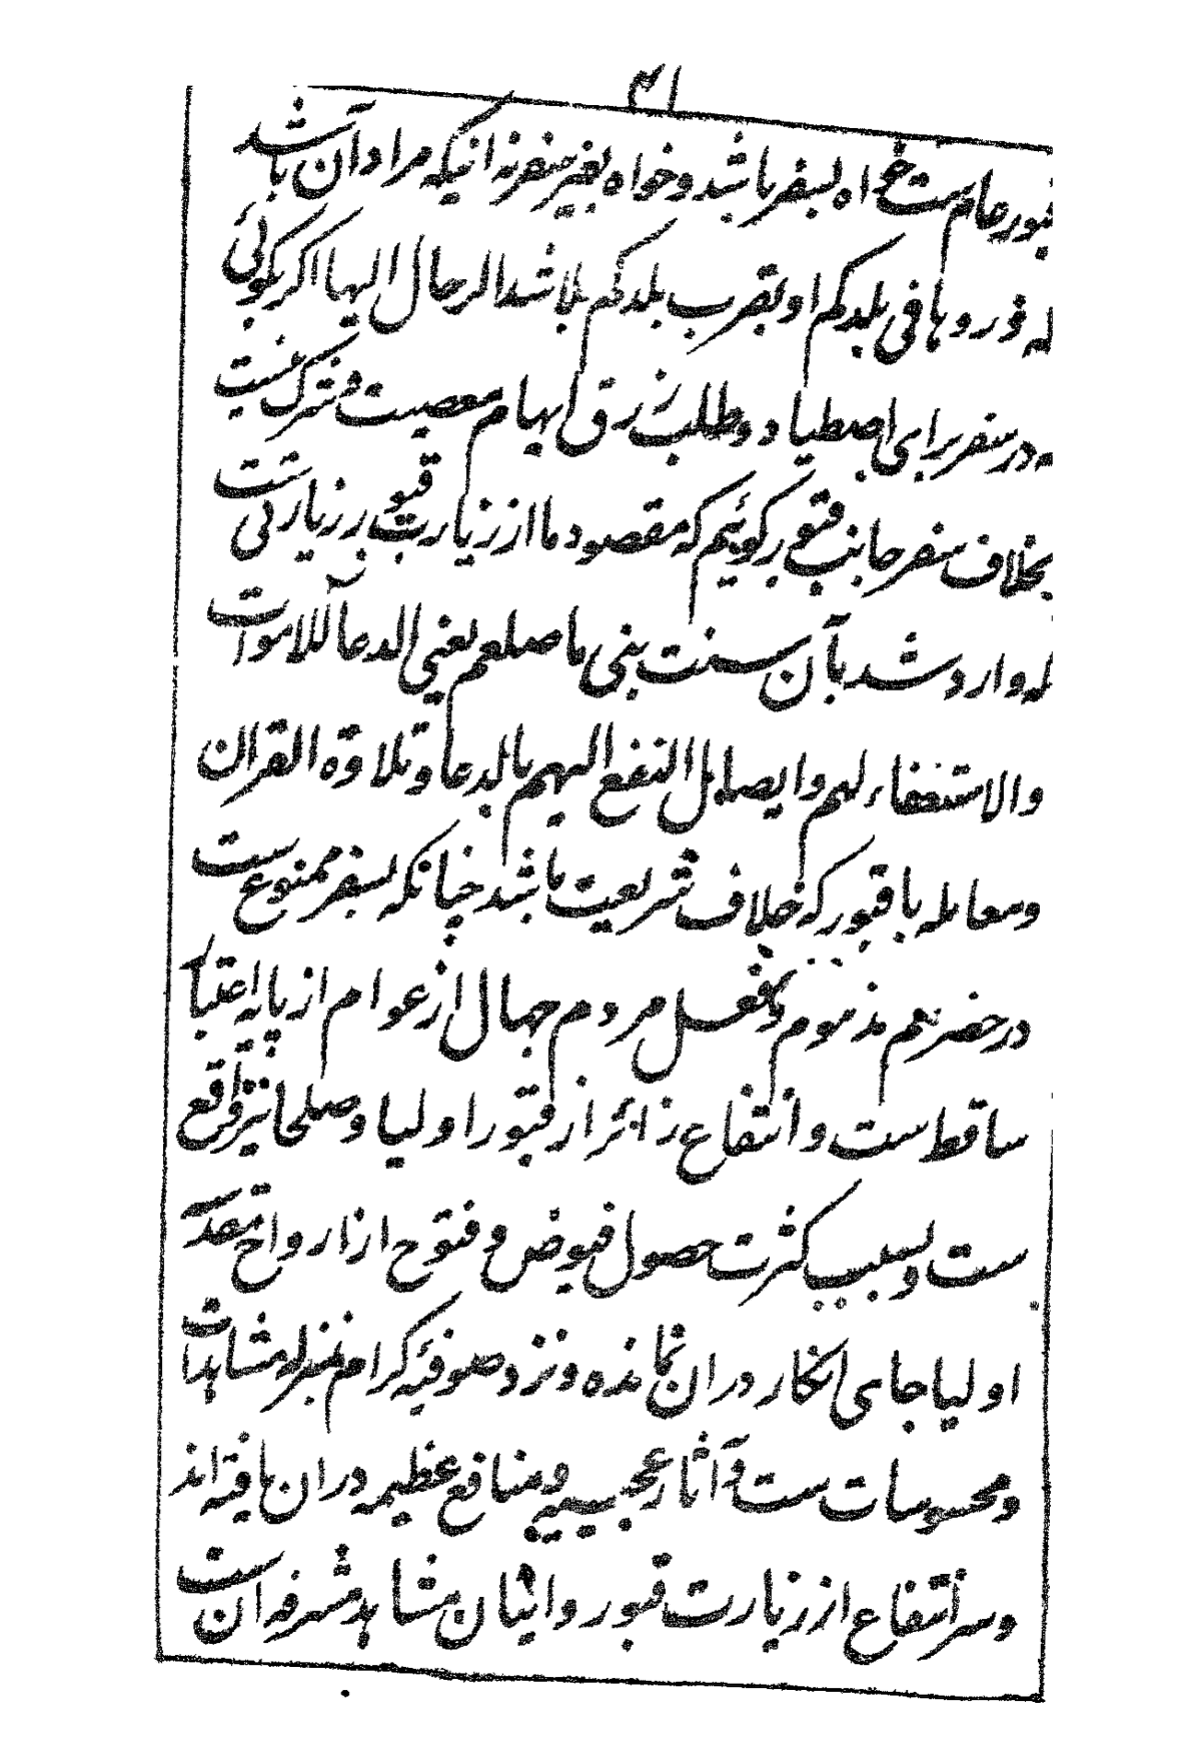 ۴۱
قبور عام ست خواه بسفر باشد و خواه بغیر سفر نه انیکه مراد آن باشد
که زوروها فی بلدکم او بقرب بلدکم بلا شد الرحال الیها اکر بکوئی
که در سفر برای اصطیاد و طلب رزق ایهام معصیت و شرک نیست
بخلاف سفر جانب قبور کوئیم که مقصود ما از زیارت قبور زیارتی ست
که وارد شد بآن سنت نبی ما صلعم یعنی الدعآ للاموات
والاستغفاء لهم وایصال النفع الیهم بالدعا وتلاوة القران
ومعامله با قبور که خلاف شریعت باشد چنانکه بسفر ممنوع ست
در حضر هم مذموم و فعل مردم جهال از عوام از پایه اعتبار
ساقط ست و انتفاع زائر از قبور اولیا و صلحا نیز واقع
ست و بسبب کثرت حصول فیوض و فتوح از ارواح مقدسه
اولیا جای انکار دران نمانده و نزد صوفیه کرام بمنزله مشاهدات
و محسوسات ست و آثار عجیبه و منافع عظیمه دران یافته اند
وسر انتفاع از زیارت قبور و اتیان مشاهد مشرفه آن ست